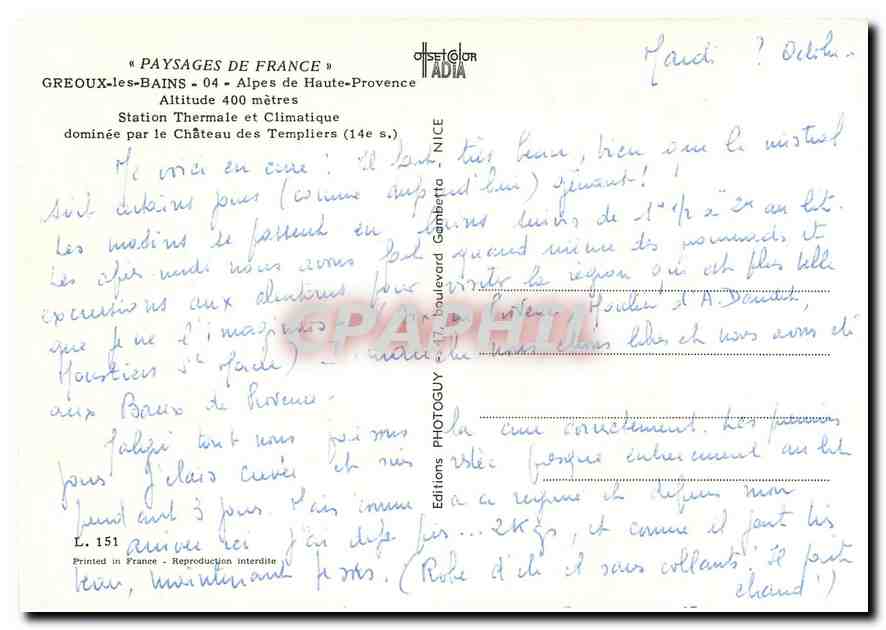 « PAYSAGES DE FRANCE »
GREOUX-les-BAINS - 04 - Alpes de Haute-Provence
Altitude 400 mètres
Station Thermale et Climatique
dominée par le Château des Templiers (14e s.)
OFFSET COLOR
ADIA
Mardi 7 Octobre
Me voici en cure ! Il fait très beau, bien que le mistral
soit certains jours (comme aujourd'hui) gênant !
Les matins se passent en bains suivis de 1h 1/2 à 2h au lit.
Les après-midi nous avons fait quand même des promenades et
excursions aux alentours pour visiter la région qui est plus belle
que je ne l'imaginais (Aix en Provence, Moulin d'A. Daudet,
Moustiers Ste Marie) - nous étions libres et nous avons été
aux Baux de Provence -
Malgré tout nous faisons la cure correctement. Les premiers
jours j'étais crevée et suis restée presque entièrement au lit
pendant 3 jours. Mais comme à ce régime et depuis mon
arrivée ici j'ai déjà pris... 2 Kgs, et comme il fait très
beau, maintenant je sors. (Robe d'été et sans collants ! Il fait
chaud !)
Editions PHOTOGUY - 47, boulevard Gambetta NICE
CPAPHIL
L. 151
Printed in France - Reproduction interdite